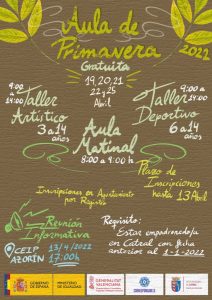 Aula de
Primavera
2022
Gratuita
19, 20, 21
22 y 25
Abril
9:00
a
14:00
Taller
Artístico
3 a 14
años
9:00
a
14:00
Taller
Deportivo
6 a 14
años
Aula
Matinal
8:00 a 9:00 h
Plazo de
Inscripciones
hasta 13 Abril
Inscripciones en Ayuntamiento
por Registro
Reunión
Informativa
CEIP
AZORÍN
13/4/2022
17:00h
Requisito:
Estar empadronado/a
en Catral con fecha
anterior al 1-1-2022
GOBIERNO
DE ESPAÑA
MINISTERIO
DE IGUALDAD
GENERALITAT
VALENCIANA
CORRESPONSABLES